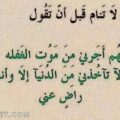 لا تَنام قبل أنّ تَقُول
لهُم أجرني مِن مَوُت الغَفله
لآ تآخذنيّ مِن الدُنيَآ إلآ وأنت
راضٍ عني